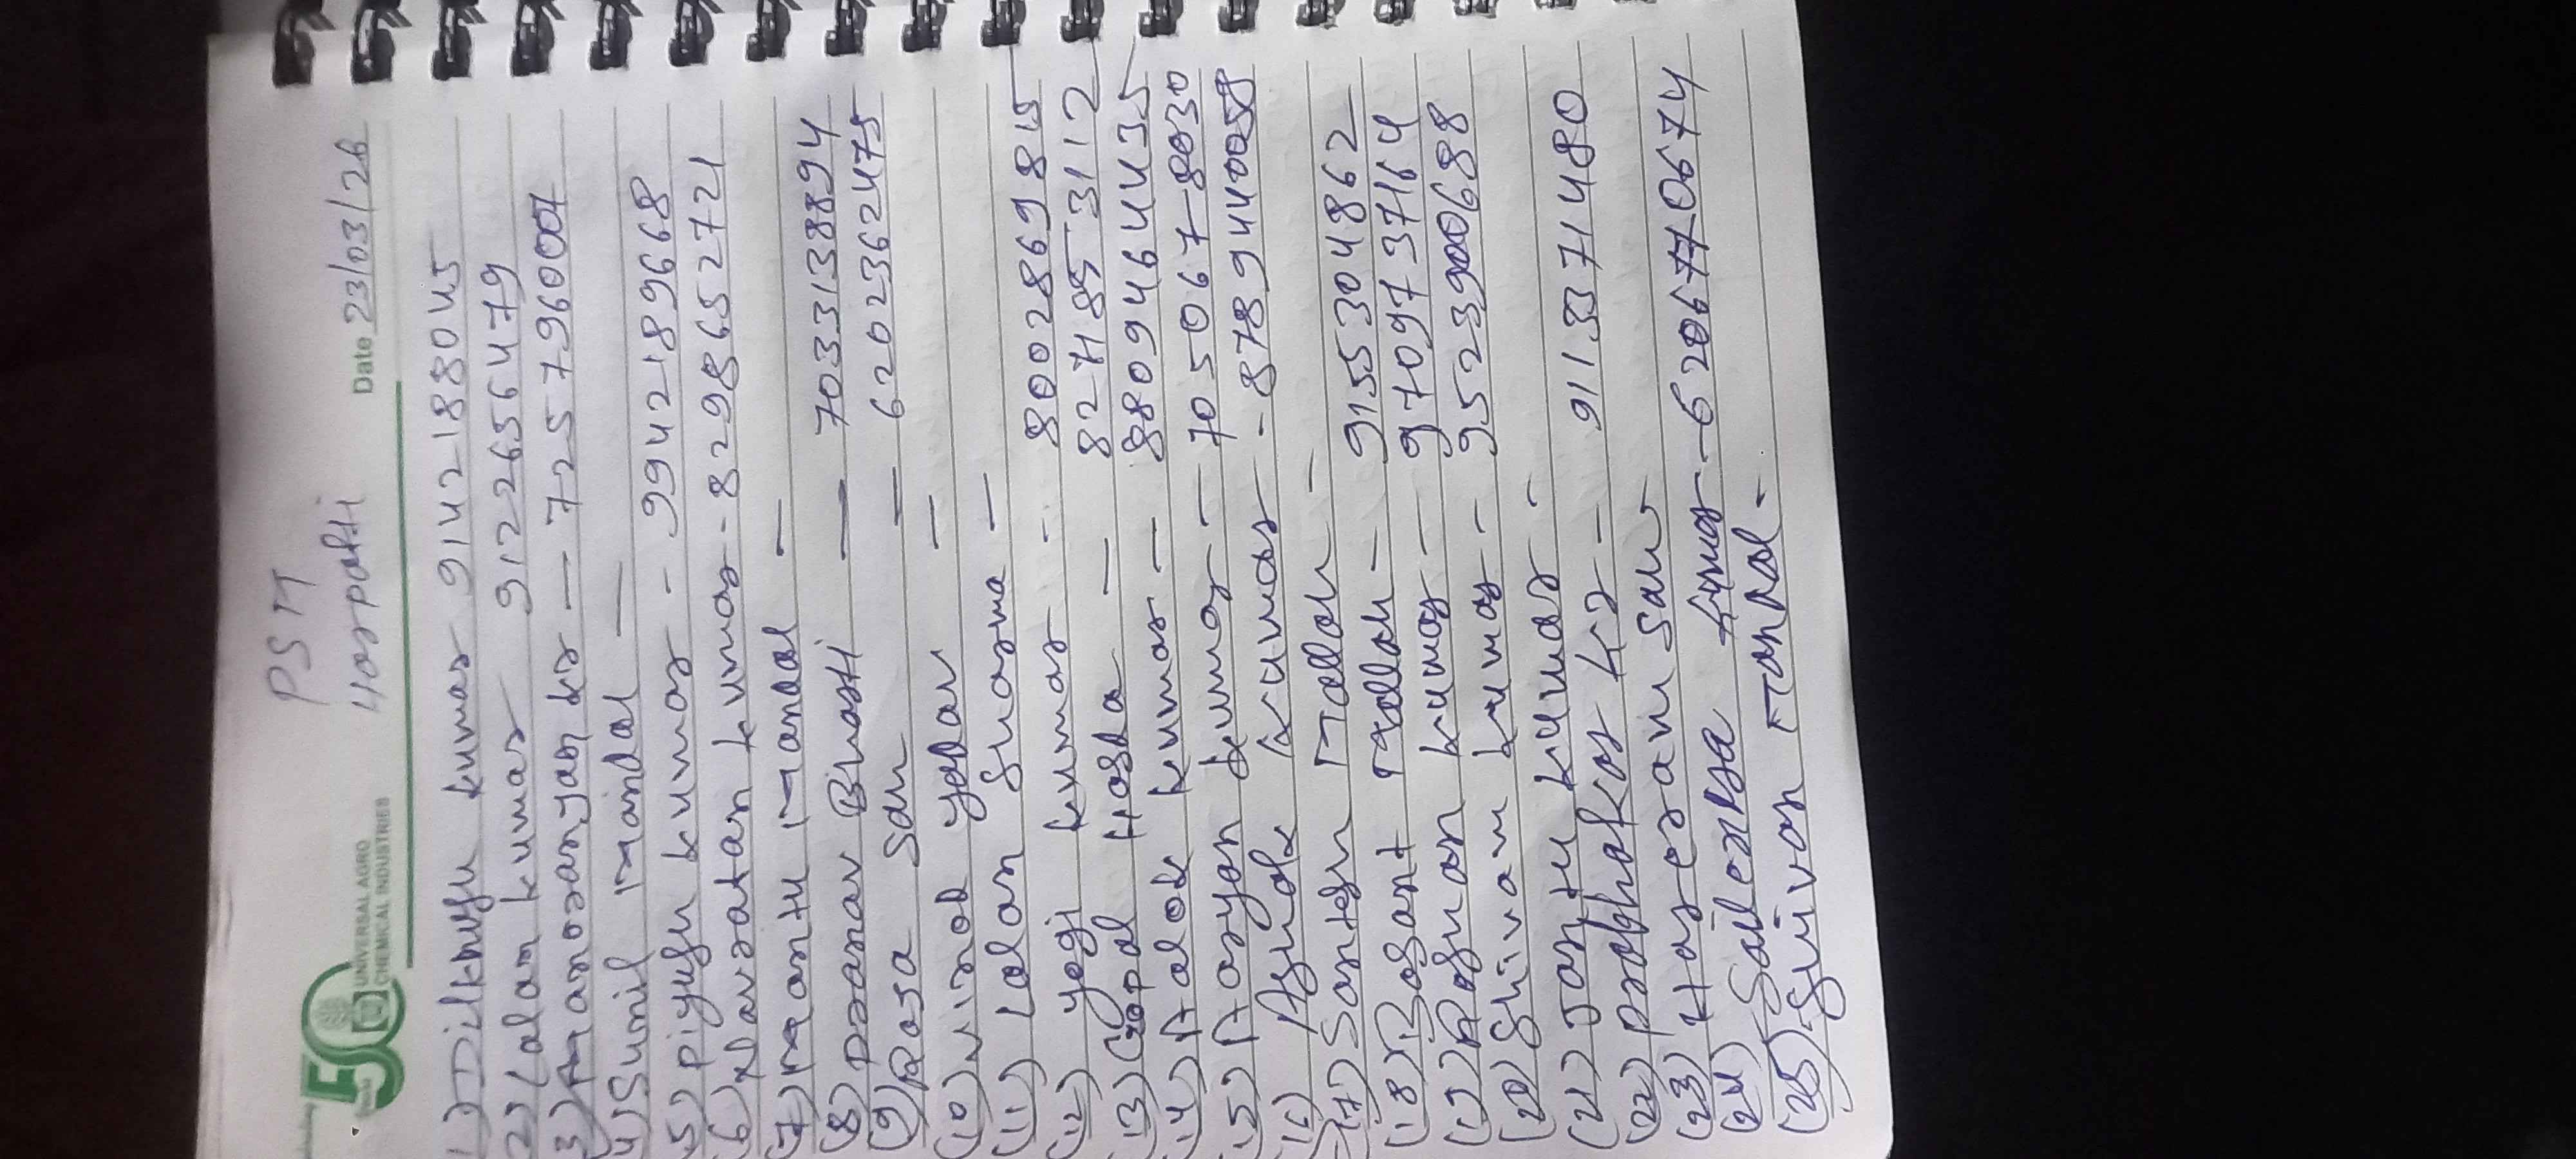 PSM
Harpatti
50
UNIVERSAL AGRO
CHEMICAL INDUSTRIES
Date 23/03/26
1) Dilkhush kumar 9142188045
2) Lalan kumar 9122656479
3) Manoranjan kr — 7257960007
4) Sunil Mandal —
5) Piyush kumar - 9942189668
(6) Navratan kumar - 8298652721
(7) Mantu Mandal -
(8) Pranav Bharti — 7033138894
(9) Raja Sah — 6202362475
(10) Vinod yadav —
(11) Lalan Sharma —
(12) yogi kumar - 8002869815
(13) Gopal Hasda — 8271853112
(14) Alok kumar — 8809464435
(15) Aaryan kumar — 705067-8030
(16) Ashok kumar - 8789440058
(17) Santosh Mallah -
(18) Basant Mallah - 9155304862
(19) Roshan kumar - 9709737164
(20) Shivam kumar - 9523900688
(21) Jantu kumar -
(22) Prabhakar kr - 9113371480
(23) Hareram Saw
(24) Sailendra kumar - 6206770674
(25) Shivan Mandal -